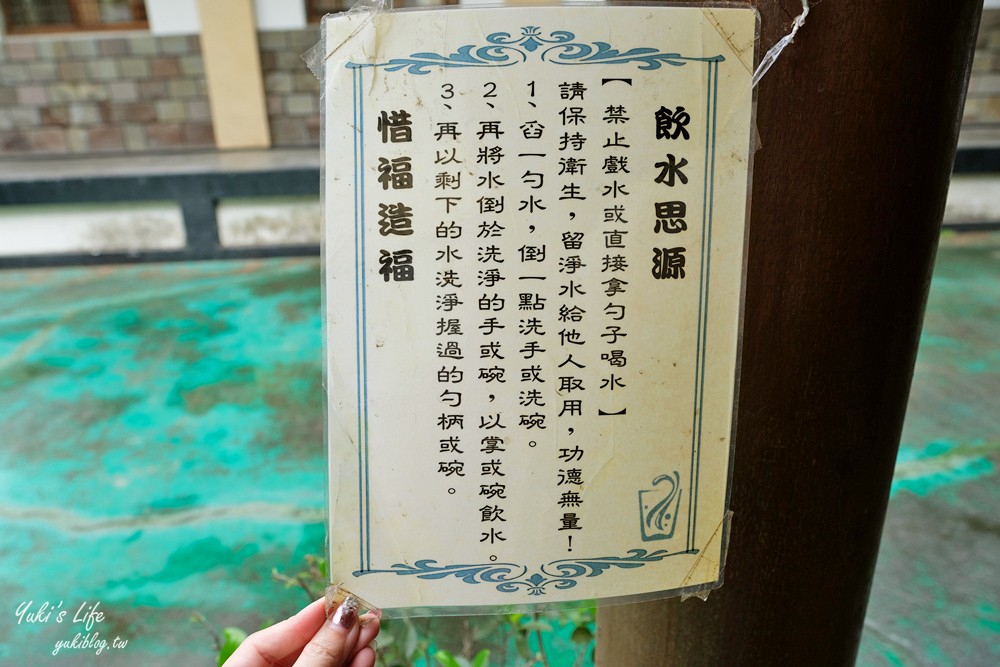 飲水思源
【禁止戲水或直接拿勺子喝水】
請保持衛生，留淨水給他人取用，功德無量！
1、舀一勺水，倒一點洗手或洗碗。
2、再將水倒於洗淨的手或碗，以掌或碗飲水。
3、再以剩下的水洗淨握過的勺柄或碗。
惜福造福
Yuki's Life
yukiblog.tw